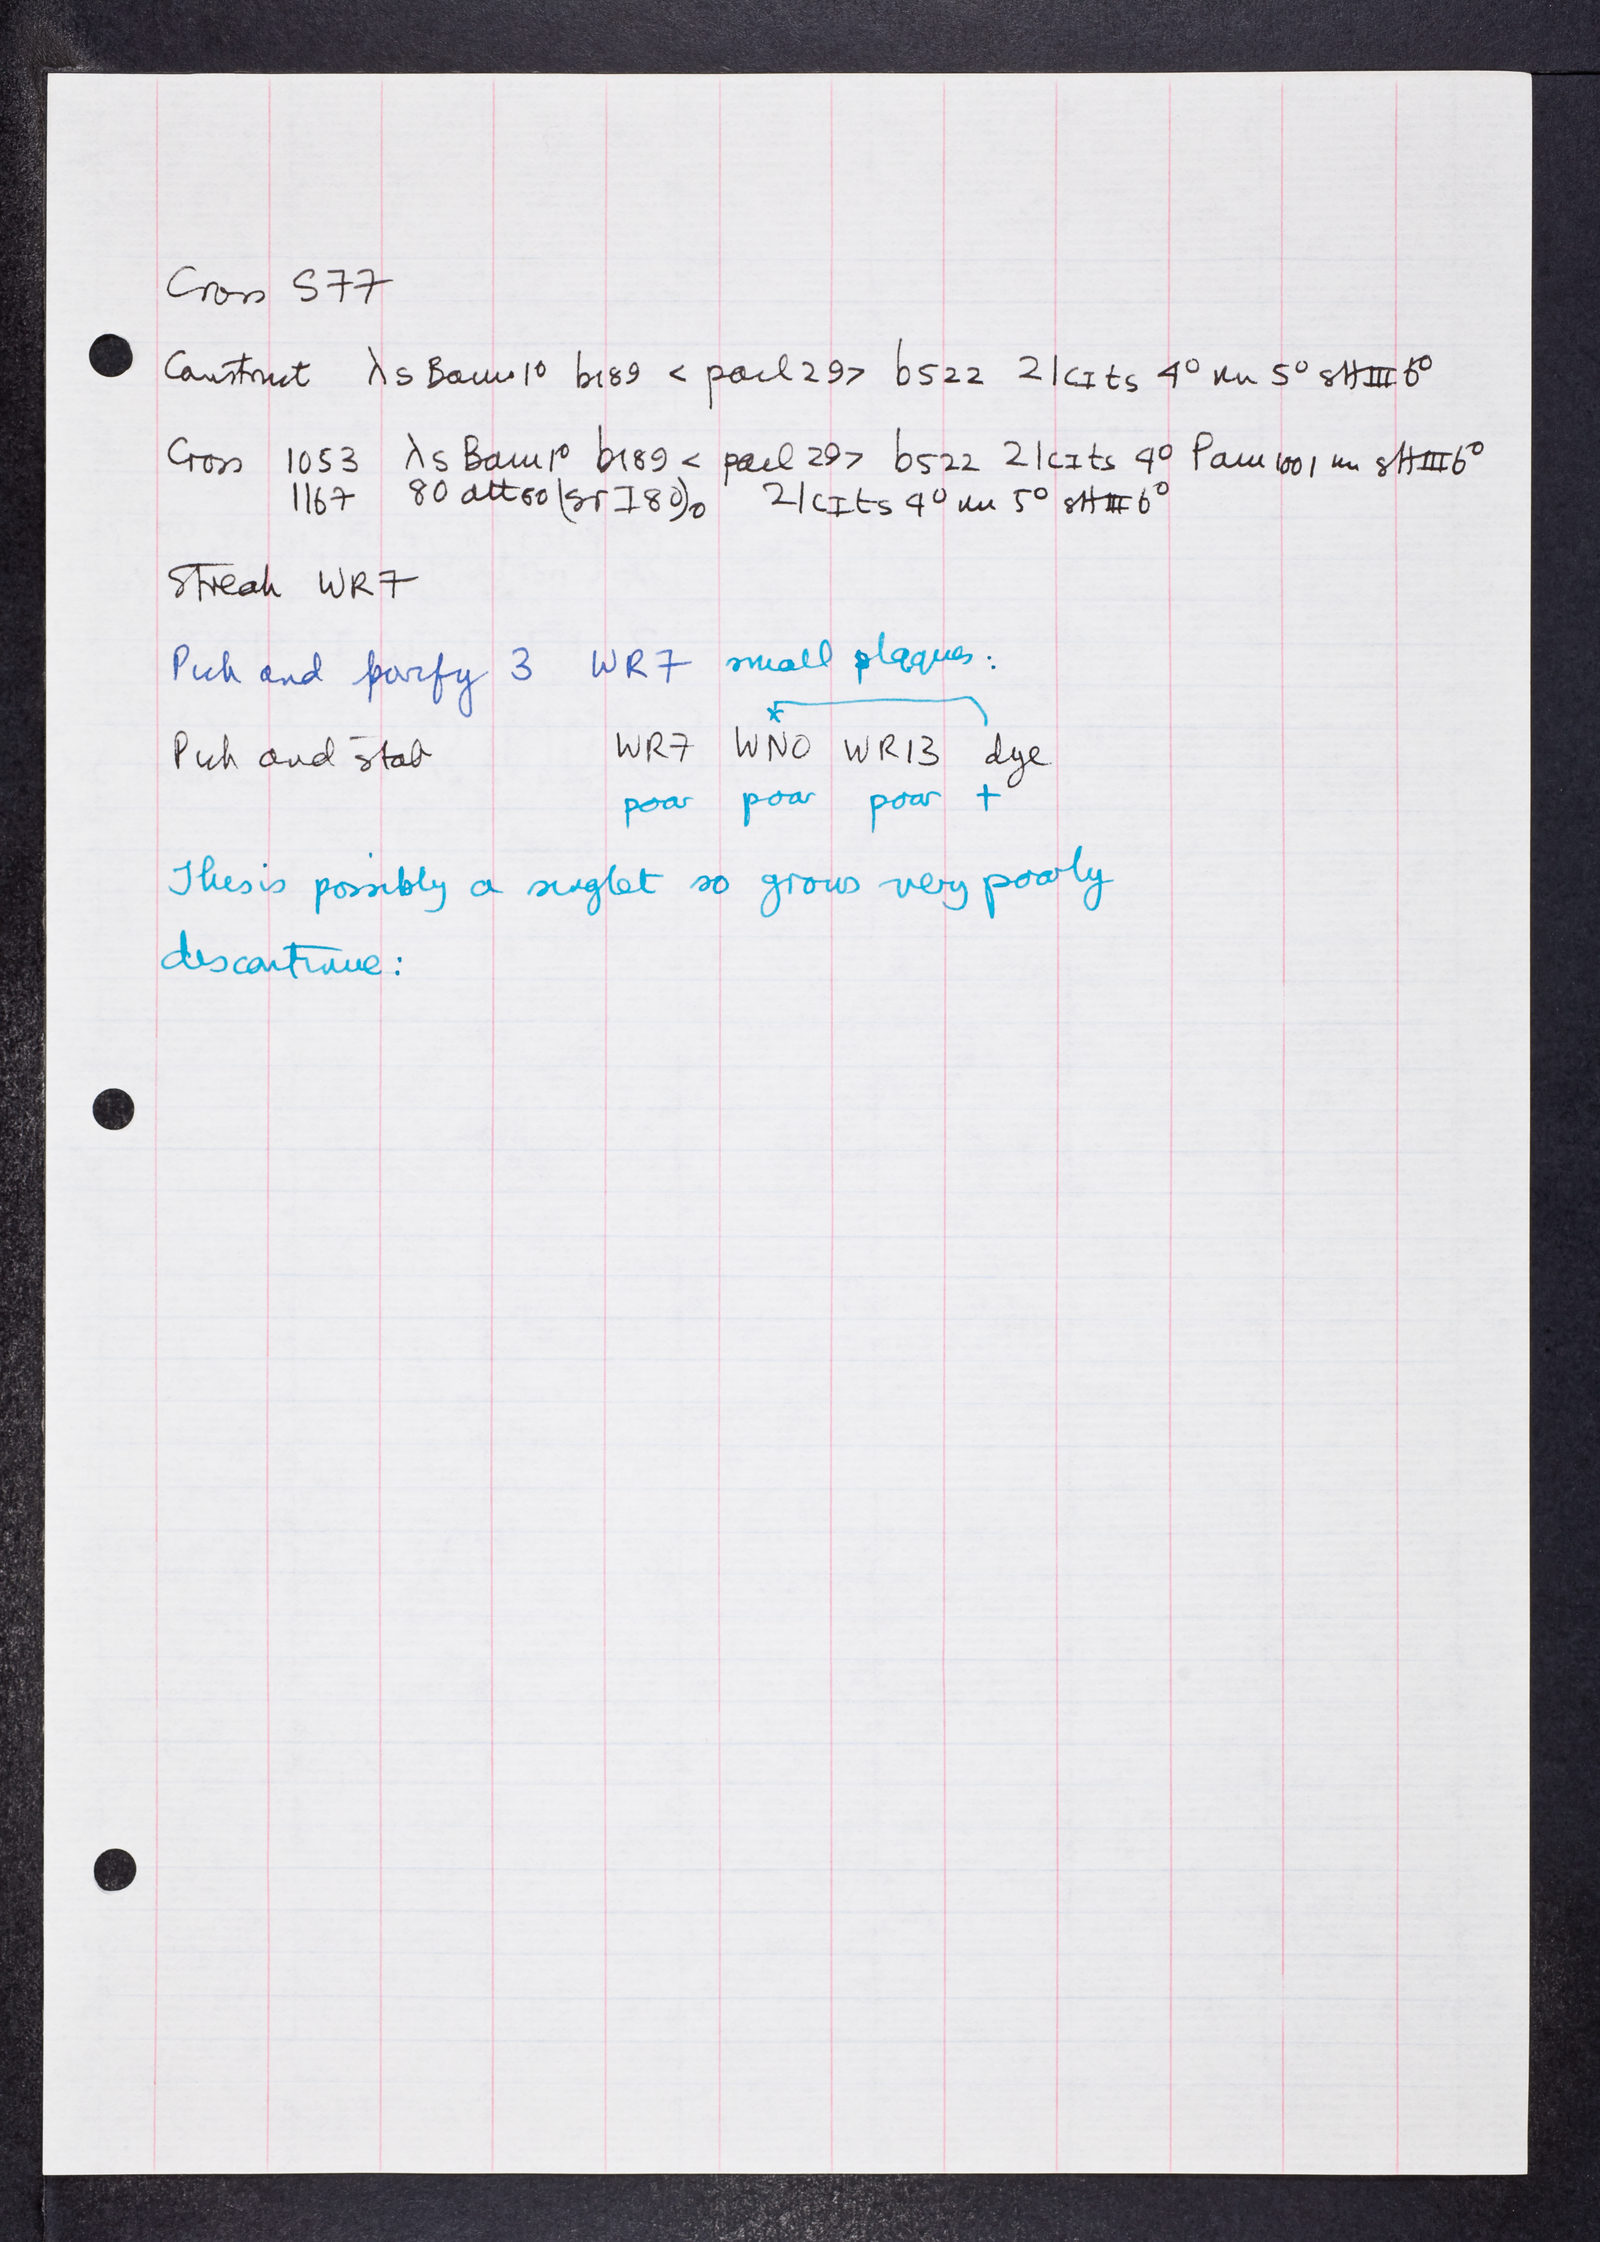 Cross S77
Construct λ sBam1° b189 < pacl 29> b522 21cIts 4° nin 5° sHIII6°
Cross 1053 λ sBam1° b189 < pacl 29> b522 21cIts 4° Pam1001 nin sHIII6°
1167 80 att80 (srI80)° 21cIts 4° nin 5° sHIII6°
Streak WR7
Pick and purify 3 WR7 small plaques:
*
Pick and stab WR7 WNO WR13 dye
poor poor poor +
This is possibly a singlet so grows very poorly
discontinue: